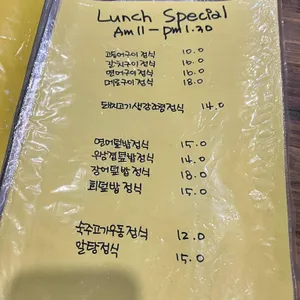 Lunch Special
Am 11 - pm 1.30
고등어구이정식 10.0
갈치구이정식 16.0
연어구이정식 16.0
메로구이정식 18.0
돼지고기생강조림정식 14.0
연어덮밥정식 15.0
우삼겹덮밥정식 14.0
장어덮밥정식 18.0
회덮밥정식 15.0
숙주고기우동정식 12.0
알탕정식 15.0